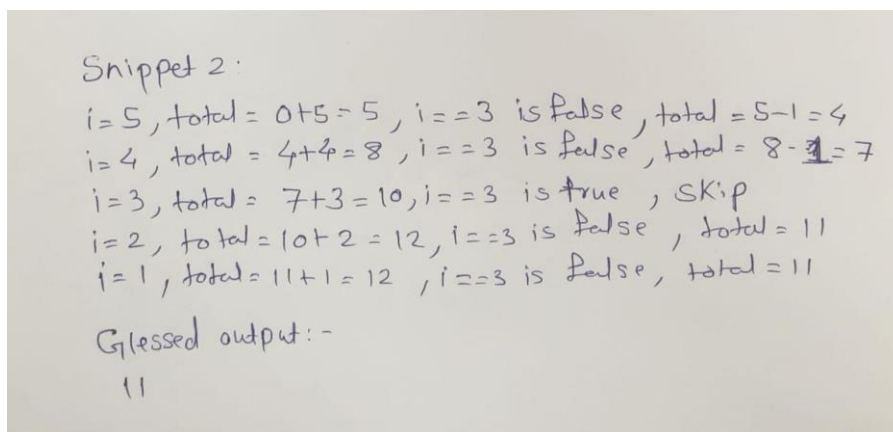 Snippet 2:
i=5, total = 0+5=5, i==3 is false, total = 5-1=4
i=4, total = 4+4=8, i==3 is false, total = 8-1=7
i=3, total = 7+3=10, i==3 is true, skip
i=2, total=10+2=12, i==3 is false, total=11
i=1, total=11+1=12, i==3 is false, total=11
Glessed output:-
11